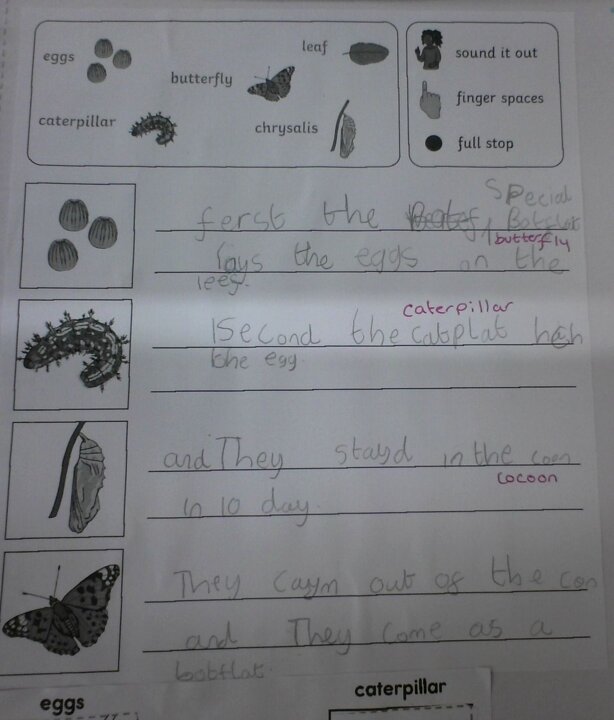 eggs
leaf
butterfly
caterpillar
chrysalis
sound it out
finger spaces
full stop
Special
ferst the Botflat
butterfly
lays the eggs on the
lees.
caterpillar
Second the catplat hach
the egg.
and They stayd in the coon
cocoon
in 10 day.
They caym out of the con
and They come as a
botflat.
eggs
caterpillar